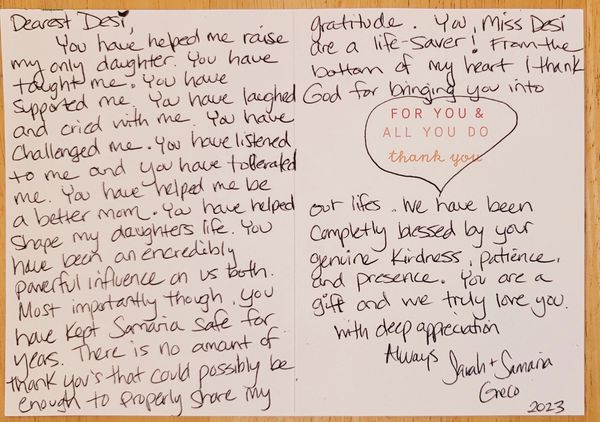 Dearest Desi,
You have helped me raise
my only daughter. You have
taught me. You have
supported me. You have laughed
and cried with me. You have
challenged me. You have listened
to me and you have tolerated
me. You have helped me be
a better mom. You have helped
shape my daughters life. You
have been an encredibly
powerful influence on us both.
Most importantly though, you
have kept Samaria safe for
years. There is no amount of
thank you's that could possibly be
enough to properly share my
gratitude. You, Miss Desi
are a life-saver! From the
bottom of my heart I thank
God for bringing you into
FOR YOU &
ALL YOU DO
thank you
our lifes. We have been
completly blessed by your
genuine kindness, patience,
and presence. You are a
gift and we truly love you.
with deep appreciation
Always
Sarah + Samaria
Greco
2023